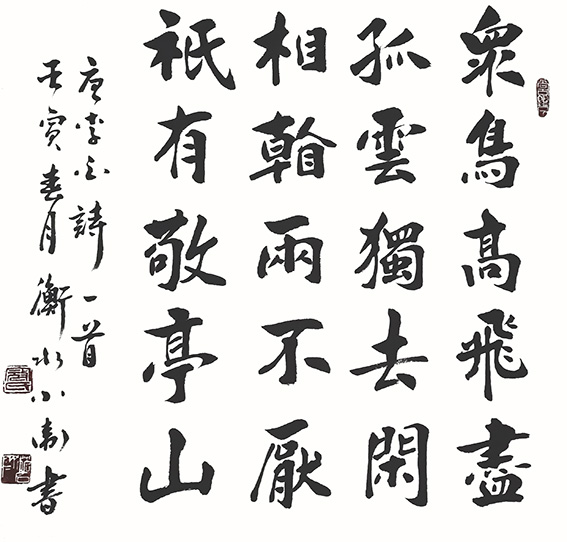 眾鳥高飛盡
孤雲獨去閑
相看兩不厭
祇有敬亭山
唐李白詩一首
壬寅春月衡水小書